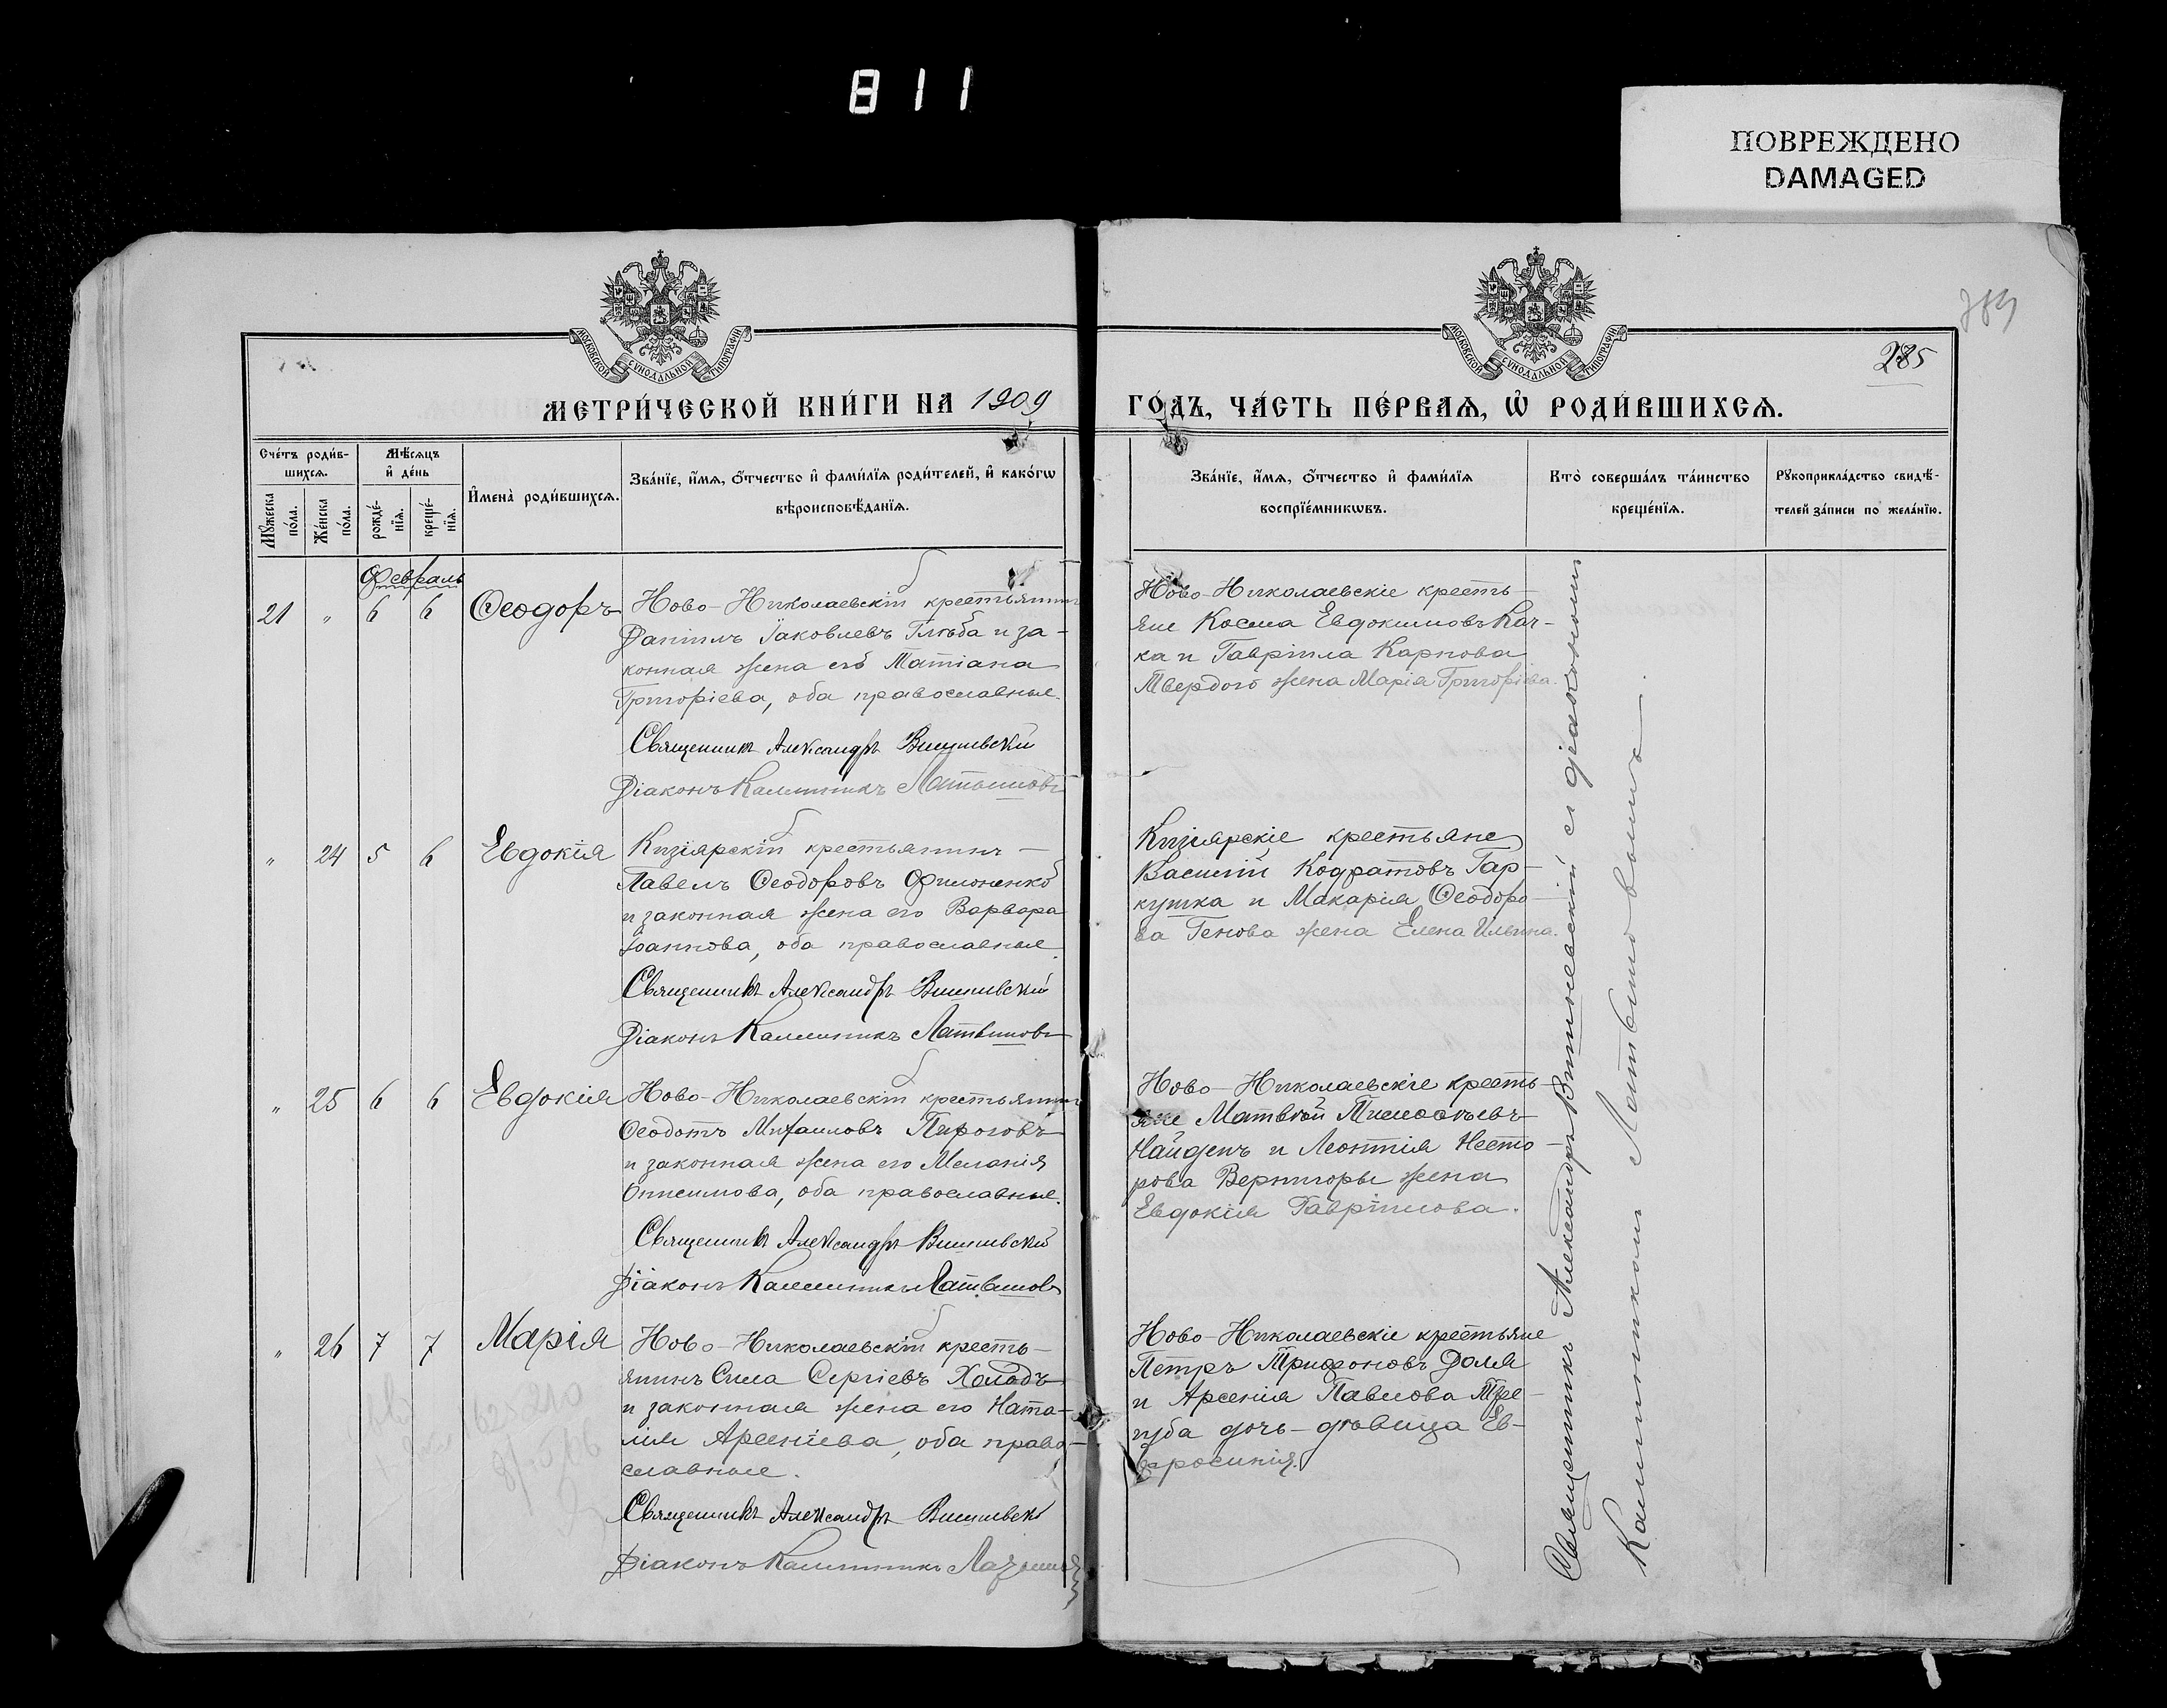 811
ПОВРЕЖДЕНО
DAMAGED
МОСКОВСКОЙ СѴНОДАЛЬНОЙ ТИПОГРАФІИ
МОСКОВСКОЙ СѴНОДАЛЬНОЙ ТИПОГРАФІИ
285
МЕТРИ́ЧЕСКОЙ КНИ́ГИ НА 1909
ГО́ДЪ, ЧА́СТЬ ПЕ́РВАѦ, Ѽ РОДИ́ВШИХСѦ.
Сче́тъ роди́в-
шихсѧ.
Мꙋ́жеска по́ла.
Же́нска по́ла.
Мѣ́сѧцъ
и҆ де́нь
рожде́-
нїѧ.
креще́-
нїѧ.
И҆мена̀ роди́вшихсѧ.
Зва́нїе, и҆́мѧ, ѻ҆́тчество и҆ фами́лїѧ роди́телей, и҆ како́гѡ
вѣроисповѣ́данїѧ.
Зва́нїе, и҆́мѧ, ѻ҆́тчество и҆ фами́лїѧ
воспрїе́мникѡвъ.
Кто̀ соверша́лъ та́инство
креще́нїѧ.
Рꙋкоприкла́дство свидѣ́-
телей за́писи по жела́нїю.
Февраль
21 " 6 6 Ѳеодоръ
Ново-Николаевскій крестьянинъ
Даніилъ Іаковлевъ Глоба и за-
конная жена его Татіана
Григоріева, оба православные.
Священникъ Александръ Вишневскій
Діаконъ Каллиникъ
Ново-Николаевскіе кресть-
яне Косма Евдокимовъ Кач-
ка и Гавріила Карпова
Твердого жена Марія Григоріева.
" 24 5 6 Евдокія
Кизіярскій крестьянинъ
Павелъ Ѳеодоровъ Филоненко
и законная жена его Варвара
Іоаннова, оба православные.
Священникъ Александръ Вишневскій
Діаконъ Каллиникъ
Кизіярскіе крестьяне
Василій Кодратовъ Гар-
кушка и Макарія Ѳеодоро-
ва Генова жена Елена Ильина.
" 25 6 6 Евдокія
Ново-Николаевскій крестьянинъ
Ѳеодотъ Михаиловъ Пироговъ
и законная жена его Меланія
Онисимова, оба православные.
Священникъ Александръ Вишневскій
Діаконъ Каллиникъ
Ново-Николаевскіе кресть-
яне Матвѣй Тимоѳеевъ
Найденъ и Леонтія Несто-
рова Вернигоры жена
Евдокія Гавріилова.
" 26 7 7 Марія
Ново-Николаевскій кресть-
янинъ Сила Сергіевъ Холодъ
и законная жена его Ната-
лія Арсеніева, оба право-
славные.
Священникъ Александръ Вишневскій
Діаконъ Каллиникъ
Ново-Николаевскіе крестьяне
Петръ Трифоновъ Доля
и Арсенія Павлова Тре-
губа дочь-дѣвица Ев-
фросинія.
Священникъ Александръ Вишневскій съ діакономъ
Каллиникомъ